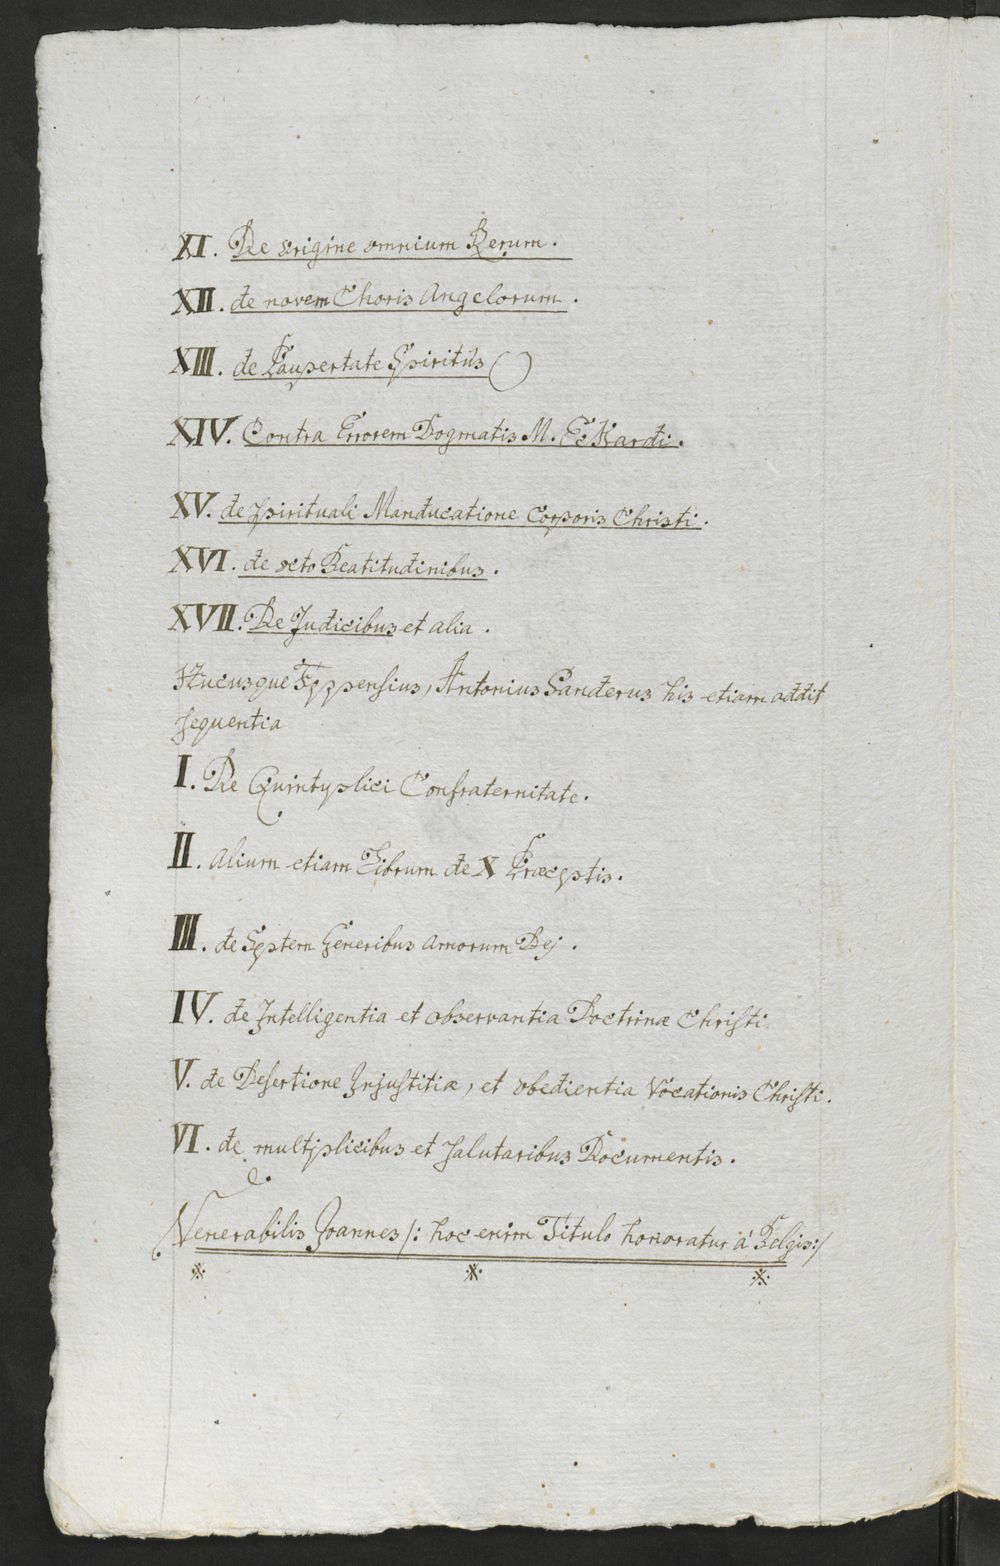 XI. De origine omnium Rerum.
XII. de novem Choris Angelorum.
XIII. de Paupertate Spiritûs
XIV. Contra Errorem Dogmatis M. Ekardi.
XV. de spirituali Manducatione Corporis Christi.
XVI. de octo Beatitudinibus.
XVII. De Judicibus et alia.
Hucusque Foppensius, Antonius Sanderus his etiam addit
sequentia
I. De Quintuplici Confraternitate.
II. Alium etiam Librum de X Præceptis.
III. de Septem Generibus Amorum Dej.
IV. de Intelligentia et observantia Doctrinæ Christi.
V. de Desertione Injustitiæ, et obedientia Vocationis Christi.
VI. de multiplicibus et salutaribus Documentis.
Venerabilis Joannes /: hoc enim Titulo honoratur à Belgis:/